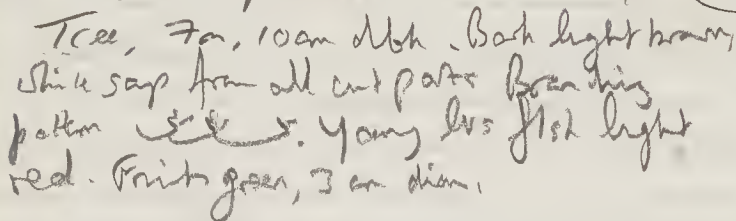 Tree, 7m, 10cm dbh. Bark light brown,
white sap from all cut parts Branching
pattern. Young lvs flsh light
red. Fruits green, 3 cm diam.